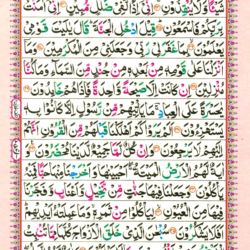 شَيْئًا وَّلَا يُنْقِذُوْنِ ۚ اِنِّیْۤ اِذًا لَّفِیْ ضَلٰلٍ مُّبِيْنٍ اِنِّیْۤ اٰمَنْتُ
بِرَبِّكُمْ فَاسْمَعُوْنِ ؕ قِيْلَ ادْخُلِ الْجَنَّةَ ؕ قَالَ يٰلَيْتَ قَوْمِیْ
يَعْلَمُوْنَ ۙ بِمَا غَفَرَ لِیْ رَبِّیْ وَجَعَلَنِیْ مِنَ الْمُكْرَمِيْنَ وَمَاۤ
اَنْزَلْنَا عَلٰی قَوْمِهٖ مِنْۢ بَعْدِهٖ مِنْ جُنْدٍ مِّنَ السَّمَآءِ وَمَا كُنَّا
مُنْزِلِيْنَ اِنْ كَانَتْ اِلَّا صَيْحَةً وَّاحِدَةً فَاِذَا هُمْ خٰمِدُوْنَ
يٰحَسْرَةً عَلَی الْعِبَادِ ۚ مَا يَاْتِيْهِمْ مِّنْ رَّسُوْلٍ اِلَّا كَانُوْا بِهٖ
يَسْتَهْزِءُوْنَ اَلَمْ يَرَوْا كَمْ اَهْلَكْنَا قَبْلَهُمْ مِّنَ الْقُرُوْنِ اَنَّهُمْ
اِلَيْهِمْ لَا يَرْجِعُوْنَ ؕ وَاِنْ كُلٌّ لَّمَّا جَمِيْعٌ لَّدَيْنَا مُحْضَرُوْنَ وَ
اٰيَةٌ لَّهُمُ الْاَرْضُ الْمَيْتَةُ ۖۚ اَحْيَيْنٰهَا وَاَخْرَجْنَا مِنْهَا حَبًّا فَمِنْهُ
يَاْكُلُوْنَ وَجَعَلْنَا فِيْهَا جَنّٰتٍ مِّنْ نَّخِيْلٍ وَّاَعْنَابٍ وَّفَجَّرْنَا
فِيْهَا مِنَ الْعُيُوْنِ ۙ لِيَاْكُلُوْا مِنْ ثَمَرِهٖ ۙ وَمَا عَمِلَتْهُ اَيْدِيْهِمْ ؕ
اَفَلَا يَشْكُرُوْنَ سُبْحٰنَ الَّذِیْ خَلَقَ الْاَزْوَاجَ كُلَّهَا مِمَّا